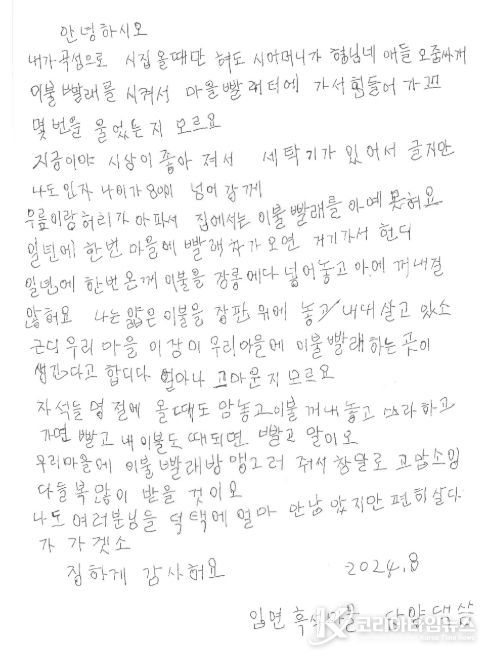 안녕하시오
내가 곡성으로 시집 올때만 혀도 시어머니가 형님네 애들 오줌싸게
이불 빨래를 시켜서 마을 빨래터에 가서 힘들어 가꼬
몇번을 울었는지 모르요
지금이야 시상이 좋아 져서 세탁기가 있어서 글지만
나도 인자 나이가 80이 넘어 강께
무릎이랑 허리가 아파서 집에서는 이불빨래를 아예 못혀요
일년에 한번 마을에 빨래차가 오면 거기가서 헌디
일년에 한번 온께 이불을 장롱에다 넣어놓고 아에 꺼내질
않혀요 나는 얇은 이불을 장판 위에 놓고 내대 살고 있소
근디 우리 마을 이장이 우리마을에 이불 빨래하는 곳이
생긴다고 합디다 얼마나 고마운지 모르요
자석들 명절에 올때도 맘놓고 이불 꺼내놓고 쓰라하고
가면 빨고 내 이불도 때되면 빨고 말이오
우리마을에 이불 빨래방 맹그러 줘서 참말로 고맙소잉
다들 복많이 받을 것이오
나도 여러분님들 덕택에 얼마 안남았지만 편히살다
가 가겟소
징하게 감사혀요 2024.8
입면 흑석마을 담양댁
K 코리아타임뉴스
Korea Time News